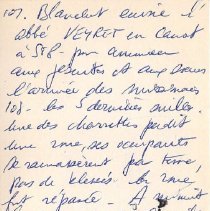 107. Blanchet envoie l'
abbé VEYRET en Canot
à St B. pour annoncer
aux Jésuites et aux Sœurs
l'arrivée des missionnaires
108 - les 5 derniers milles.
Une des charrettes perdit
une roue, ses occupants
se ramassèrent par terre,
Pas de blessés. La roue
fut réparée. A minuit